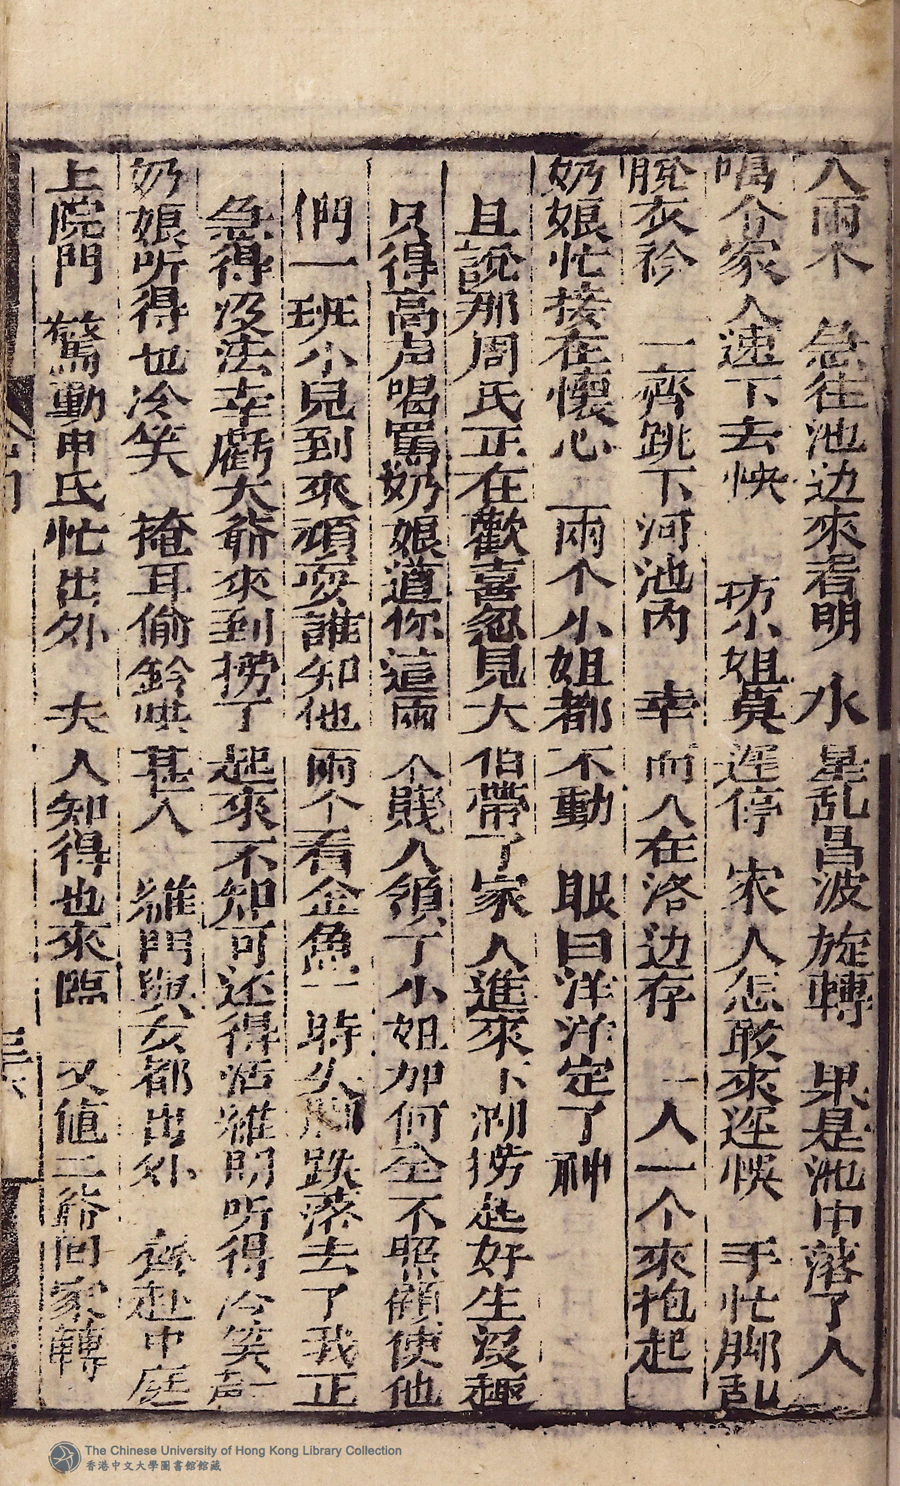 人兩木　急往池边來看明　水星乱昌波旋轉　果是池中落了人
喝介家人速下去快　　坊小姐莫遲停　家人怎敢來遲悞　手忙脚乱
脫衣衫　一齊跳下河池內　幸而人在洛边存　一人一个來抱起
奶娘忙接在懷心　兩个小姐都不動　眼曰洋洋定了神
且說那周氏正在歡喜忽見大伯帶了家人進來下湖撈起好生沒趣
只得高声喝罵奶娘道你這兩个賤人領了小姐如何全不照顧使他
們一班小兒到來頑耍誰知他兩个看金魚一時失脚跌落去了我正
急得沒法幸虧大爺來到撈了起來不知可还得活維明听得冷笑
奶娘听得也冷笑　掩耳偷鈴哄甚人　維門與女都出外　齊赴中庭
上院門　驚動申氏忙出外　夫人知得也來臨　又值二爺回家轉
The Chinese University of Hong Kong Library Collection
香港中文大學圖書館館藏